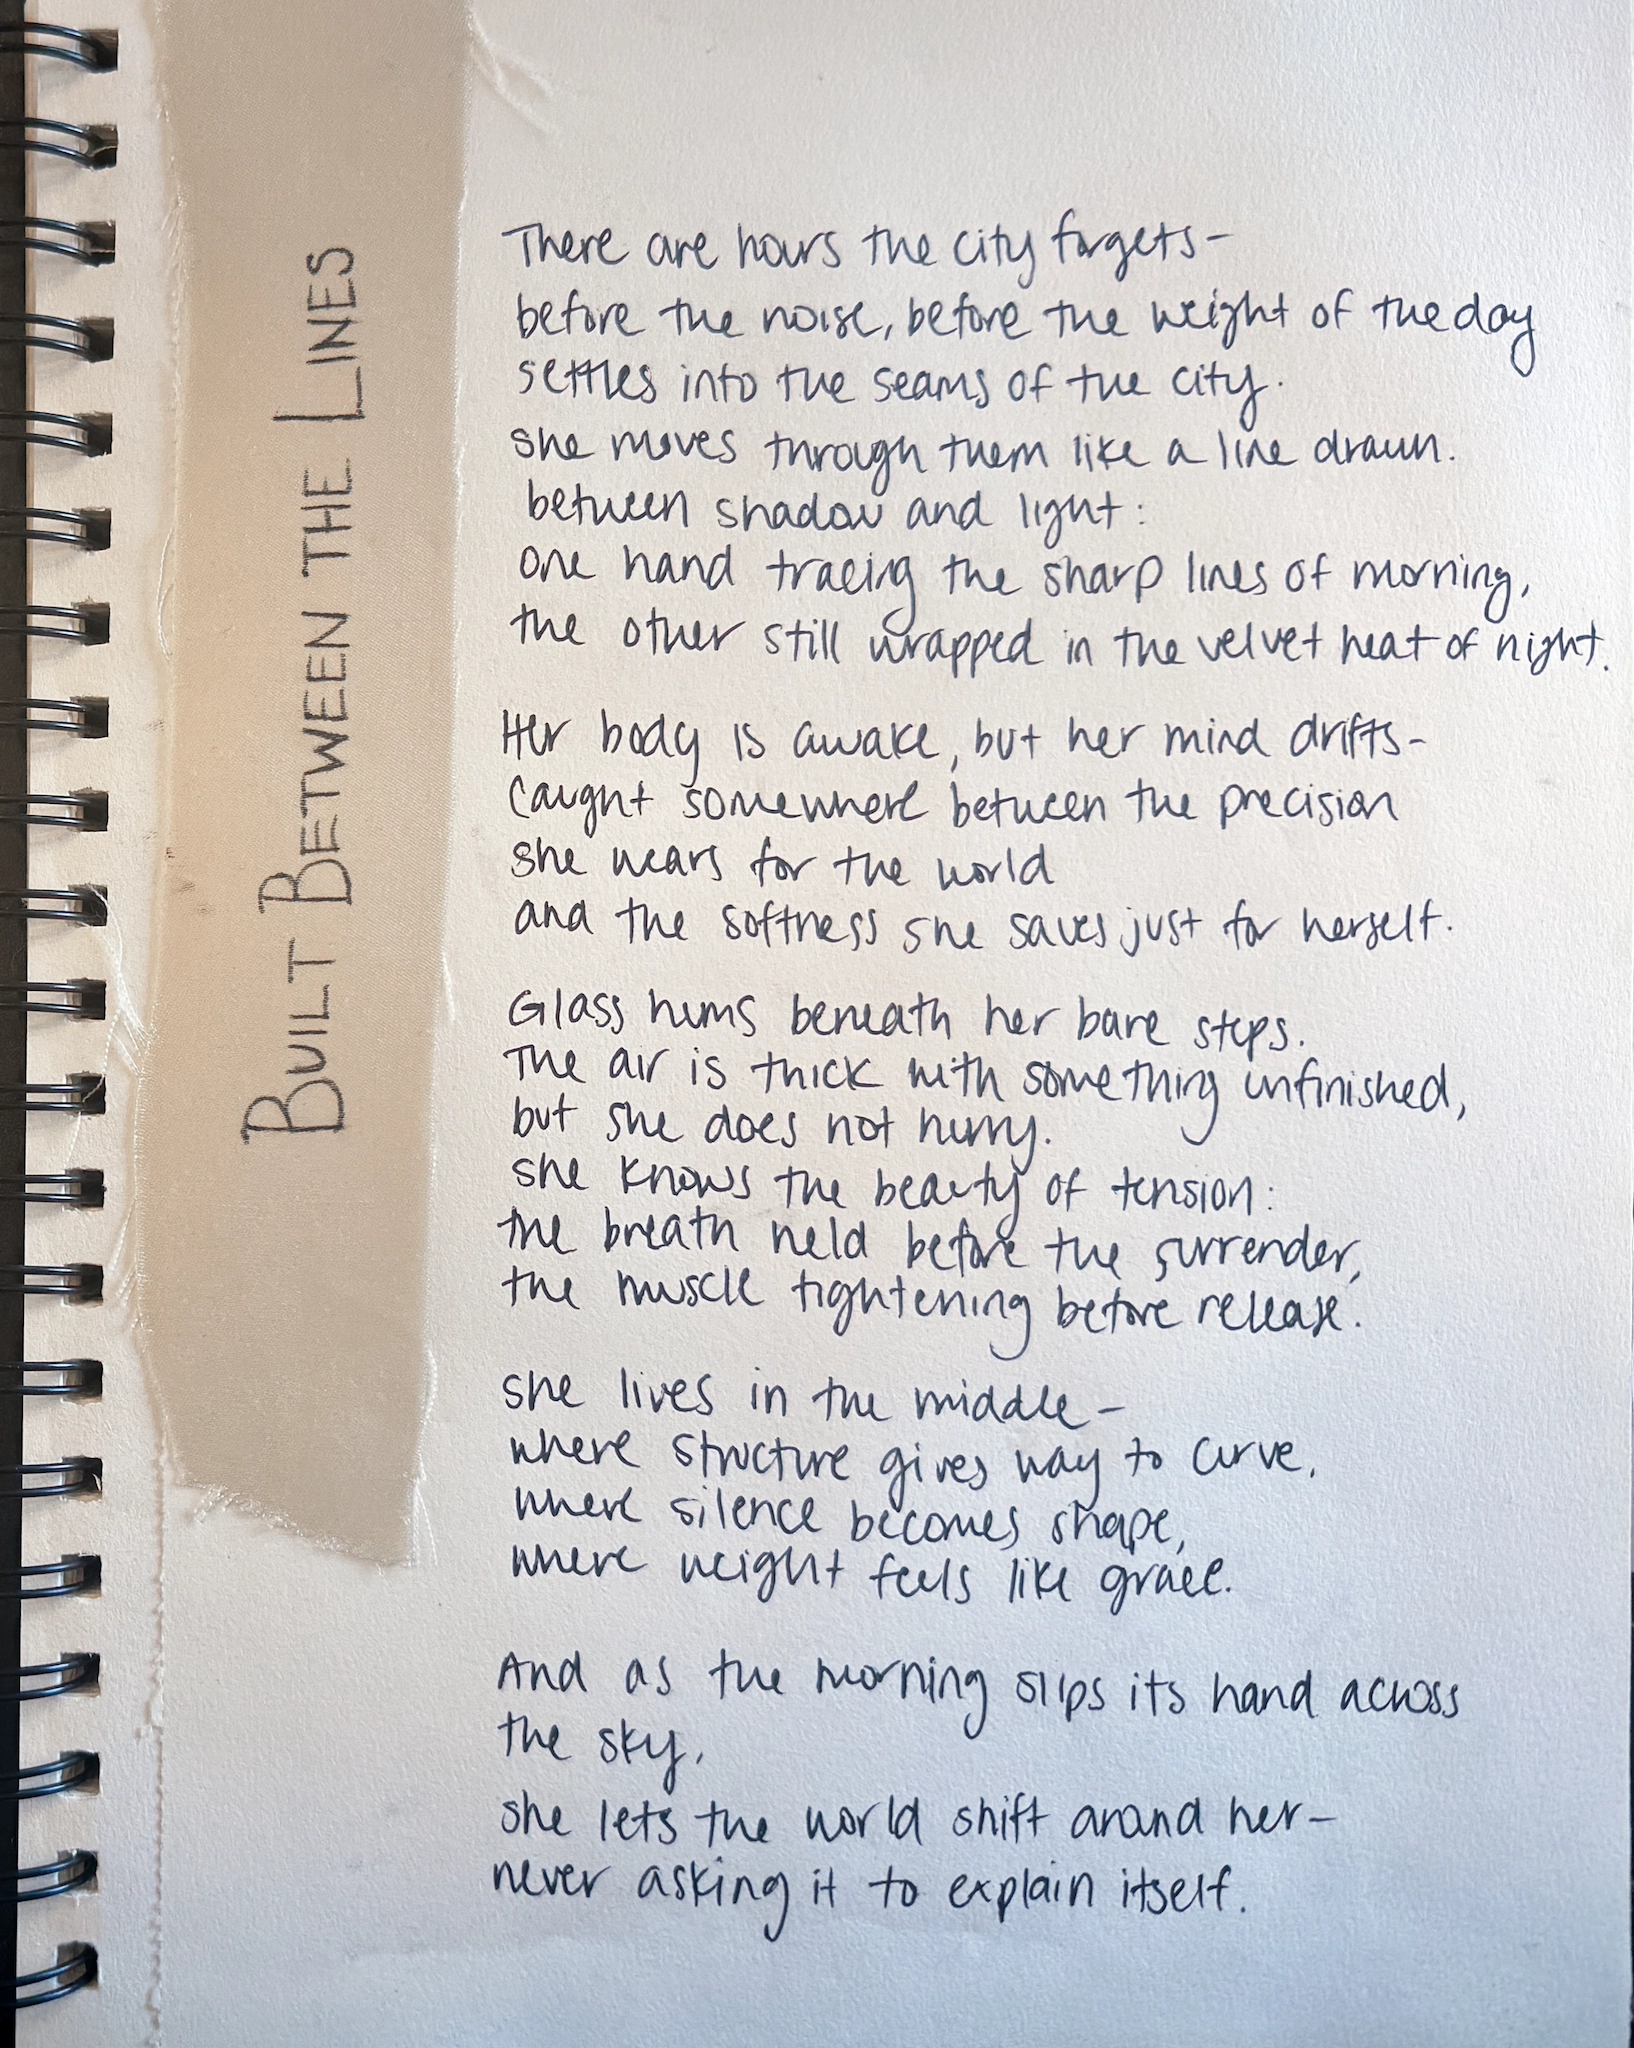 BUILT BETWEEN THE LINES
There are hours the city forgets-
before the noise, before the weight of the day
settles into the seams of the city.
she moves through them like a line drawn.
between shadow and light:
one hand tracing the sharp lines of morning,
the other still wrapped in the velvet heat of night.
Her body is awake, but her mind drifts-
caught somewhere between the precision
she wears for the world
and the softness she saves just for herself.
Glass hums beneath her bare steps.
The air is thick with something unfinished,
but she does not hurry.
she knows the beauty of tension:
the breath held before the surrender,
the muscle tightening before release.
she lives in the middle-
where structure gives way to curve,
where silence becomes shape,
where weight feels like grace.
And as the morning slips its hand across
the sky,
she lets the world shift around her-
never asking it to explain itself.